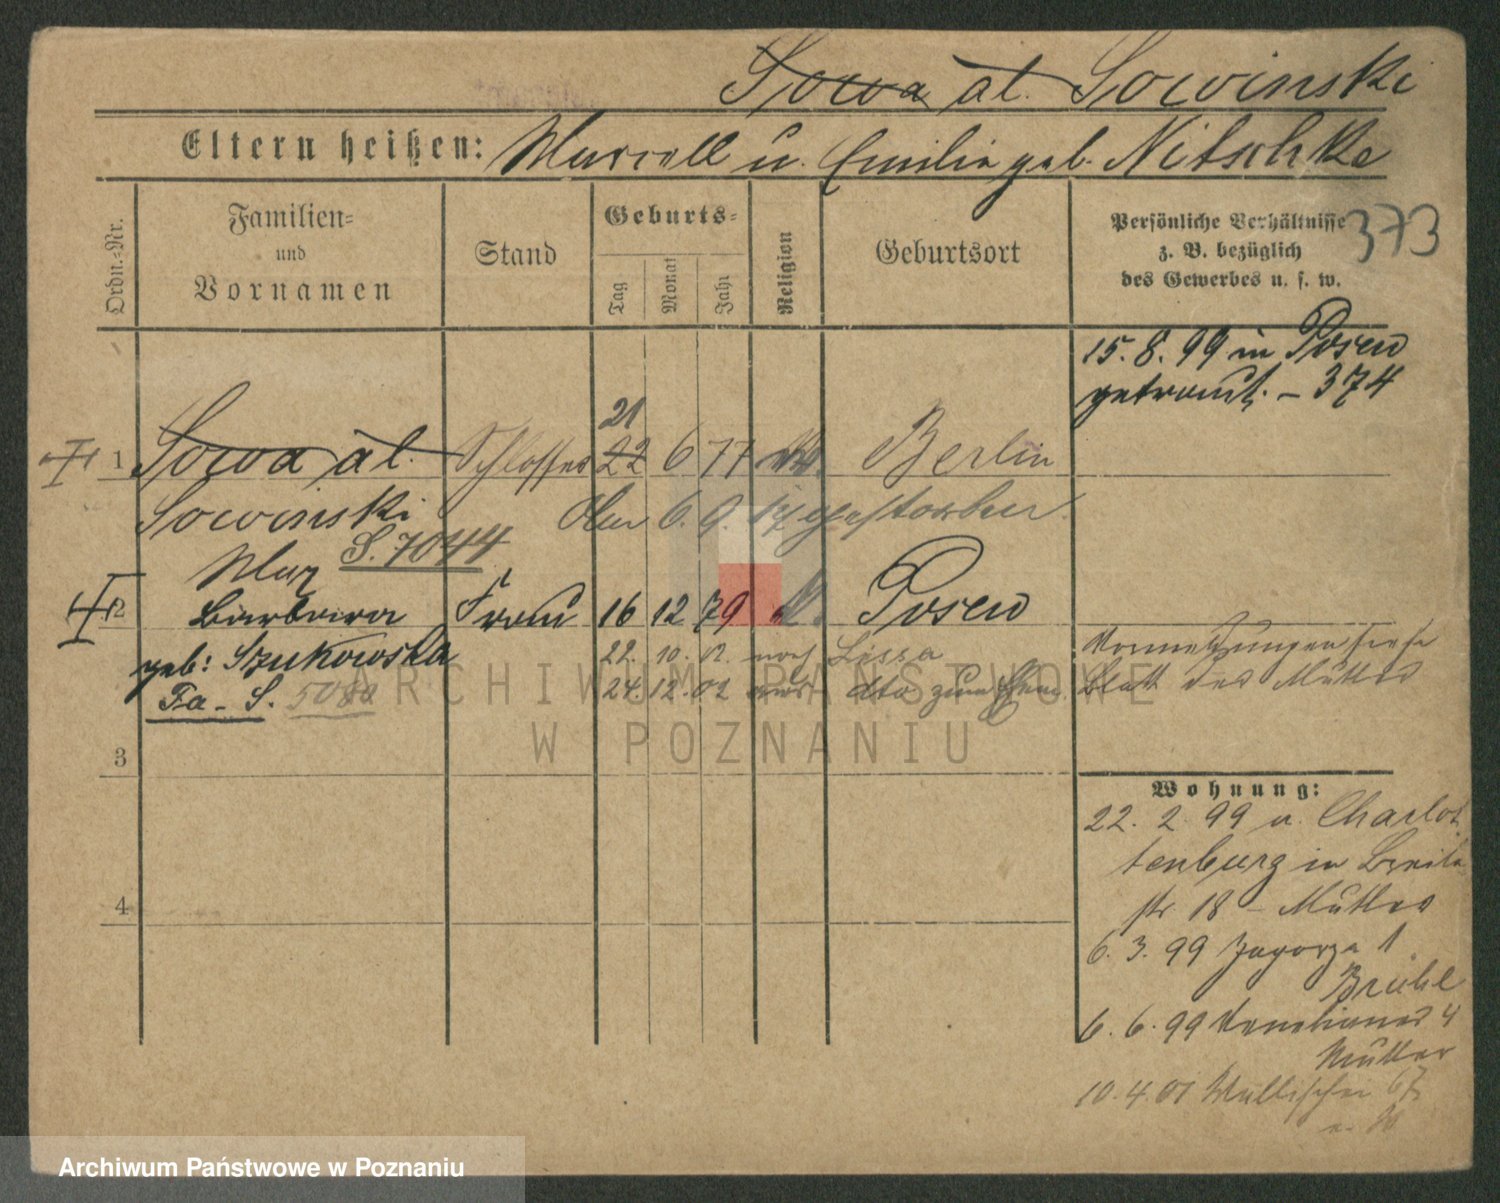 Sowa al. Sowinski
Eltern heißen: Marcell u. Emilie geb. Nitschke
Ordn.-Nr.
Familien- und Vornamen
Stand
Geburts-
Tag
Monat
Jahr
Religion
Geburtsort
Persönliche Verhältnisse
z. B. bezüglich
des Gewerbes u. s. w.
373
15. 8. 99 in Posen
getraut. - 374
21
1 Sowa al. Schlosser 22 6 77 Berlin
Sowinski Am 6. 9. gestorben.
Max S. 7044
2 Barbara Frau 16 12 79 Posen
geb: Szukowska 22. 10. 02. nach Lissa
Fa - S. 5080 24. 12. 02 dto
Vormerkungen siehe
Blatt der Mutter
3
4
Wohnung:
22. 2. 99 v. Charlot
tenburg in Breite
str 18 - Mutter
6. 3. 99 Zagorze 1
Brühl
6. 6. 99 Venetianer 4
Mutter
10. 4. 01 Wallischei 67
ARCHIWUM PAŃSTWOWE
W POZNANIU
Archiwum Państwowe w Poznaniu